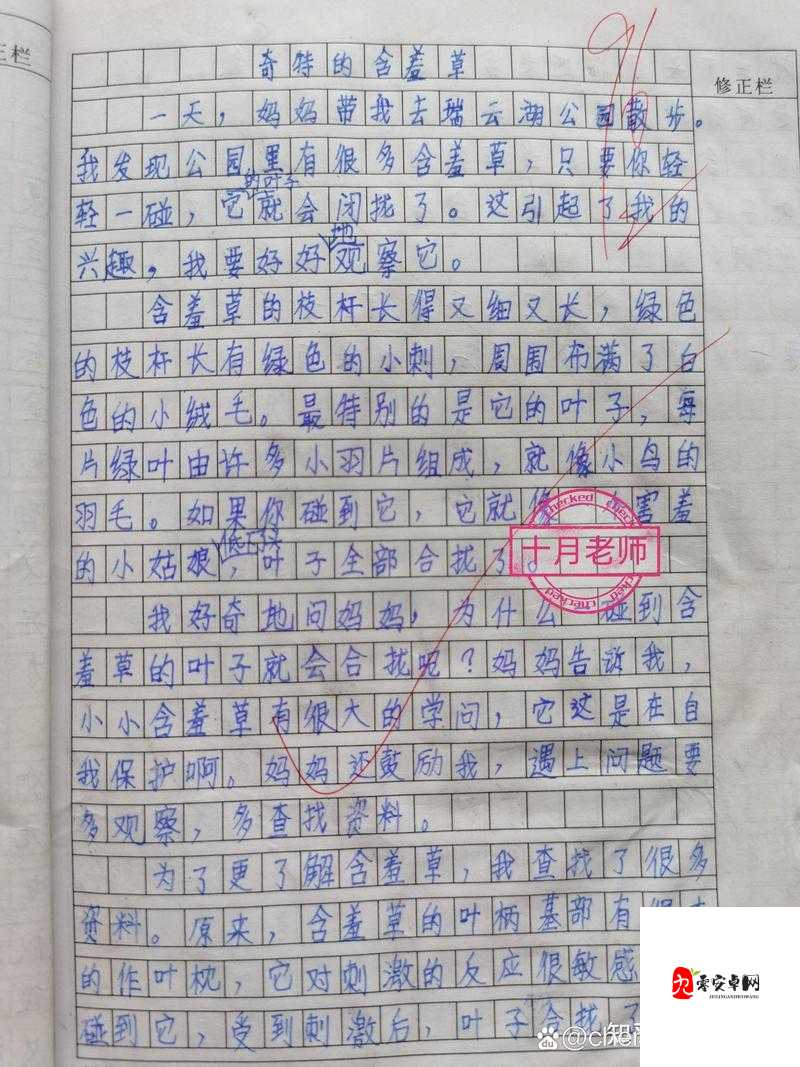 正栏
修正栏
91
奇特的含羞草
一天，妈妈带我去瑞云湖公园散步。
我发现公园里有很多含羞草，只要你轻
的叶子
轻一碰，它就会闭拢了。这引起了我的
地
兴趣，我要好好观察它。
含羞草的枝杆长得又细又长，绿色
的枝杆长有绿色的小刺，周围布满了白
色的小绒毛。最特别的是它的叶子，每
片绿叶由许多小羽片组成，就像小鸟的
羽毛。如果你碰到它，它就像 害羞
的小姑娘，叶子全部合拢了
checked
十月老师
checked
我好奇地问妈妈，为什么 碰到含
羞草的叶子就会合拢呢？妈妈告诉我，
小小含羞草有很大的学问，它这是在自
我保护啊。妈妈还鼓励我，遇上问题要
多观察，多查找资料。
为了更了解含羞草，我查找了很多
资料。原来，含羞草的叶柄基部有
的作叶枕，它对刺激的反应很敏感
碰到它，受到刺激后，叶子合找了
du
零安卓网